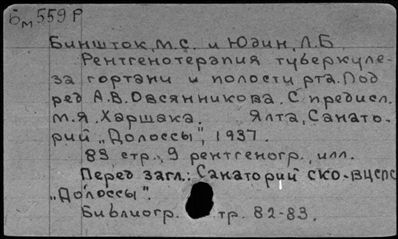 Бм 559 Р
Биншток, М.С. и Юдин, Л.Б.
Рентгенотерапия туберкуле-
за гортани и полости рта. Под
ред А.В. Овсянникова. С предисл.
М.Я. Харшака. Ялта, Санато-
рий „Долоссы", 1937.
83 стр., 9 рентгеногр., илл.
Перед загл.: Санаторий СКО-ВЦСПС
„Долоссы".
Библиогр. стр. 82-83.